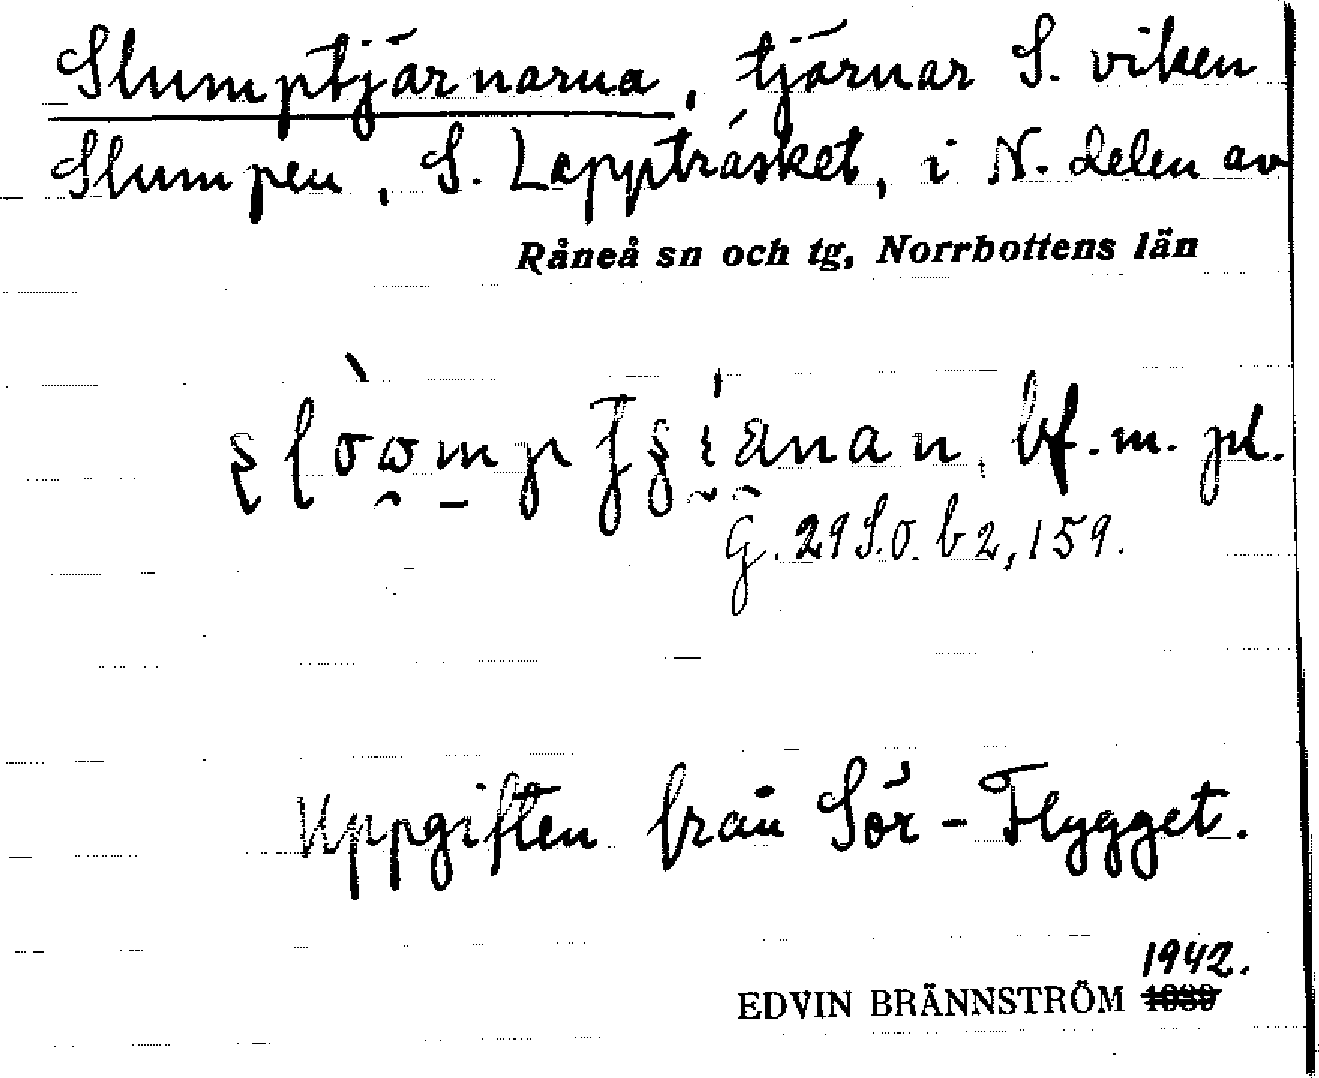 Slumptjärnarna, tjärnar S. viken
Slumpen, S. Lappträsket, i N. delen av
Råneå sn och tg, Norrbottens län
bf. m. pl.
G. 29 S.O. b 2, 159.
Uppgiften från Sör-Flygget.
1942.
EDVIN BRÄNNSTRÖM 1939